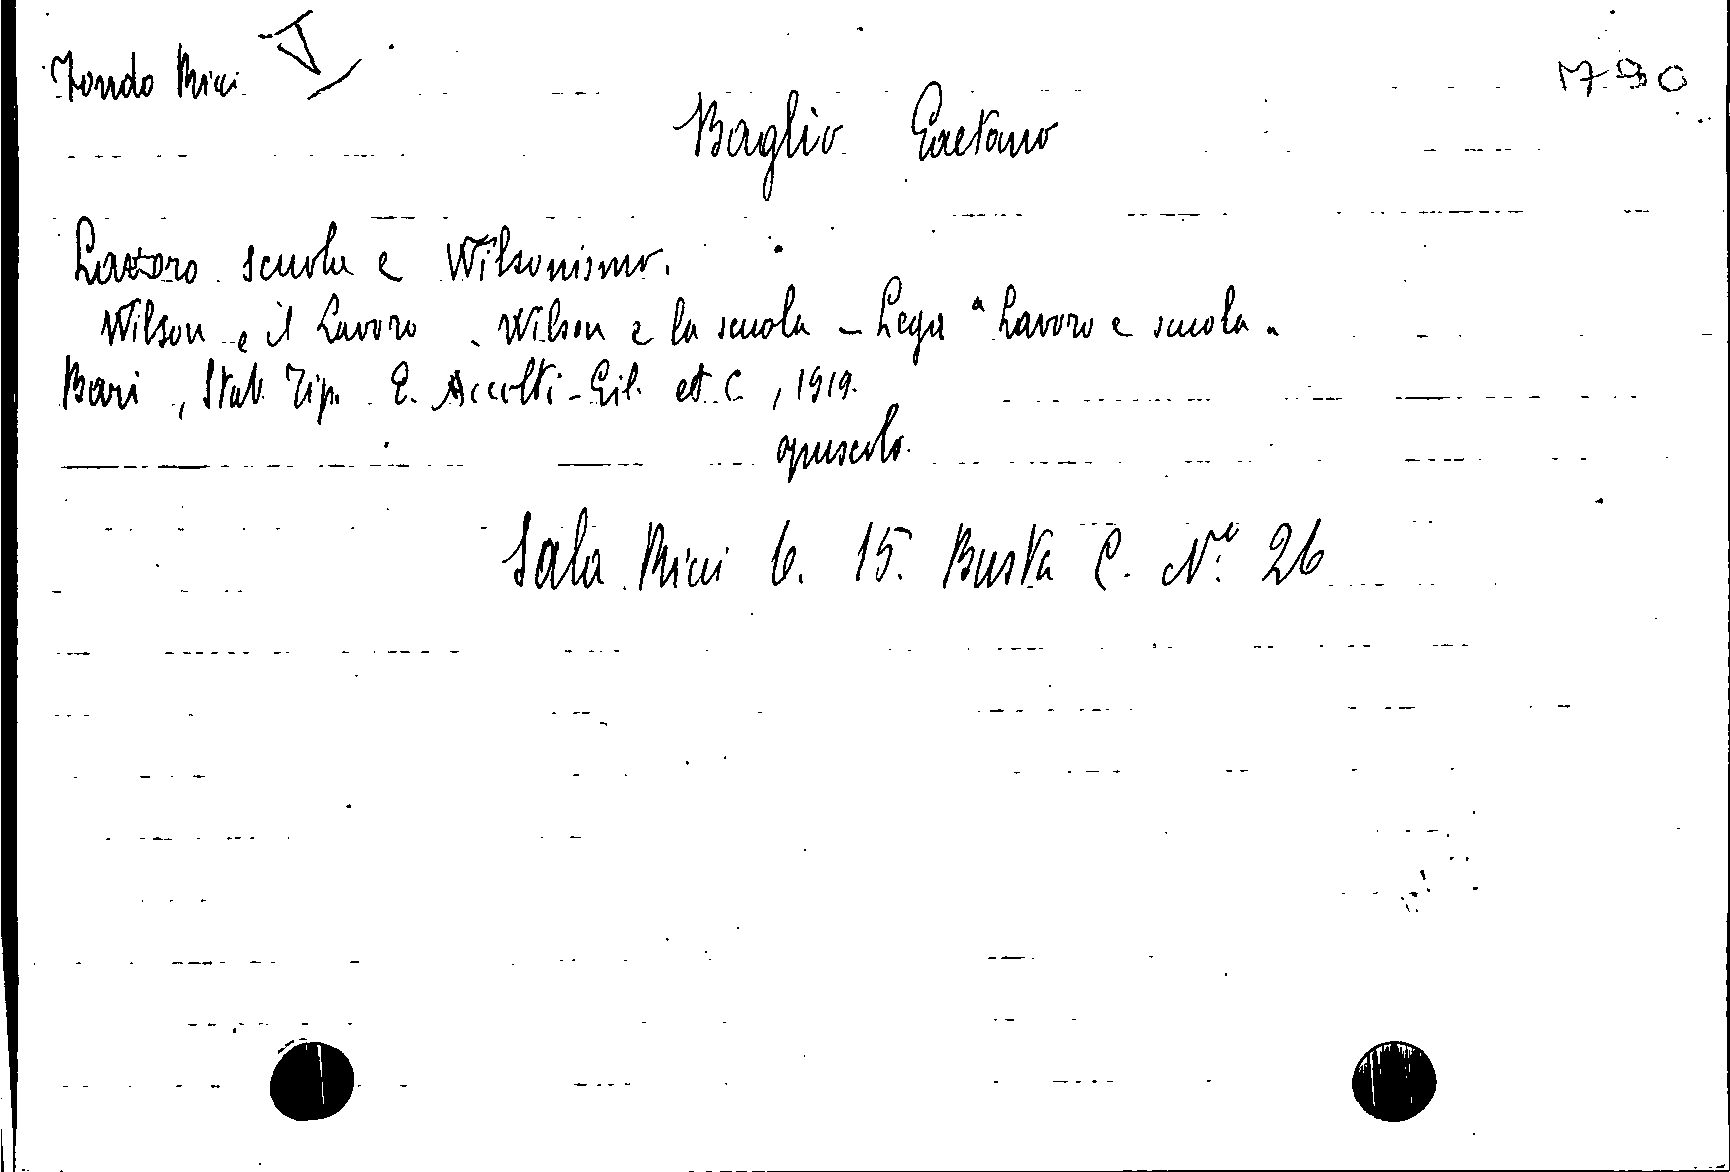 Fondo Ricci
Baglio Gaetano
Lavoro scuola e Wilsonismo.
Wilson e il Lavoro - Wilson e la scuola - Lega "Lavoro e scuola"
Bari, Stab. Tip. E. Accolti-Gil. et C, 1919.
opuscolo.
Sala Ricci 6. 15. Busta C. N.º 26